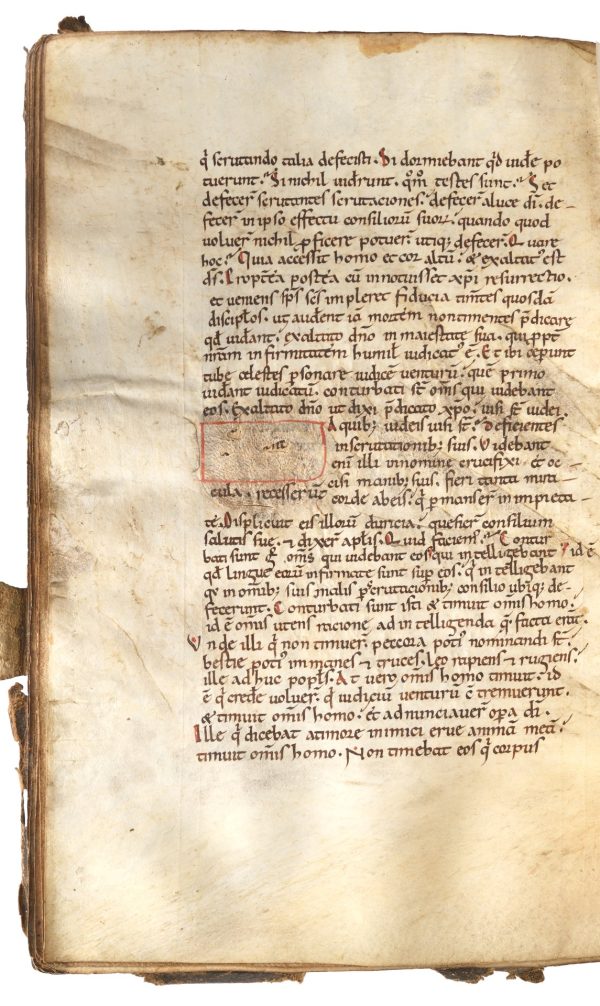 q̇ scrutando talia defecisti. Si dormiebant qd uide po
tuerunt. Si nichil uiderunt. quom̄ testes sunt. Set
defecer̄ scrutantes scrutaciones. defecer̄ aluce dī. de-
fecer̄ in ipso effectu consiliorū suor̄. quando quod
voluer̄ nichil pficere potuer̄ utiq; defecer̄. Quare
hoc. Quia accessit homo et cor altū. & exaltat' est
ds̄. Propterea postea cū innotuisset xpī resurrectio.
et ueniens sp̄s sc̄s impleret fiducia timētes quosdā
discip̄los. ut auderent iā mortem non timentes p̄dicare
qd uiderant. exaltato dn̄o in maiestate sua. qui ppt
nr̄am infirmitatem humil' iudicat' ē. Et ibi ceperunt
tube celestes psonare iudicē venturū. que primo
uiderant iudicatū. conturbati st̄ om̄s qui uidebant
eos. Exaltato dn̄o ut dixi p̄dicato xp̄o. uisi st̄ iudei.
A quib; iudeis uisi st̄. Deficientes
in scrutationib; suis. Videbant
enī illi in nomine crucifixi. et oc-
cisi manib; suis. fieri tanta mira
cula. recesserūt corde abeis. q̇ pmanser̄ in impieta-
tē. Displicuit eis illorum duricia. quesier̄ consilium
salutis sue. & dixer̄ apl̄is. Quid faciem'. Contur
bati sunt g̊ om̄s qui uidebant eos. qui intelligebant id ē
qd lingue eorū infirmate sunt sup eos. q̇ intelligebant
qr in omib; suis malis pscrutacionib; consilio ubiq; de-
fecerunt. Conturbati sunt isti & timuit om̄is homo.
id ē om̄is utens racione ad intelligenda q̄ facta erāt.
Vnde illi q̇ non timuer̄. pecora poti' nominandi st̄.
bestie poti' immanes & truces. Leo rapiens & rugiens.
ille adhuc popl̄s. At vero om̄is homo timuit. id
ē q̇ crede voluer̄. q̇ iudiciū venturū ē tremuerunt.
& timuit om̄is homo. et adnunciauer̄ opera dī.
Ille q̇ dicebat a timore inimici erue animā meā.
timuit om̄is homo. Non timebat eos q̇ corpus